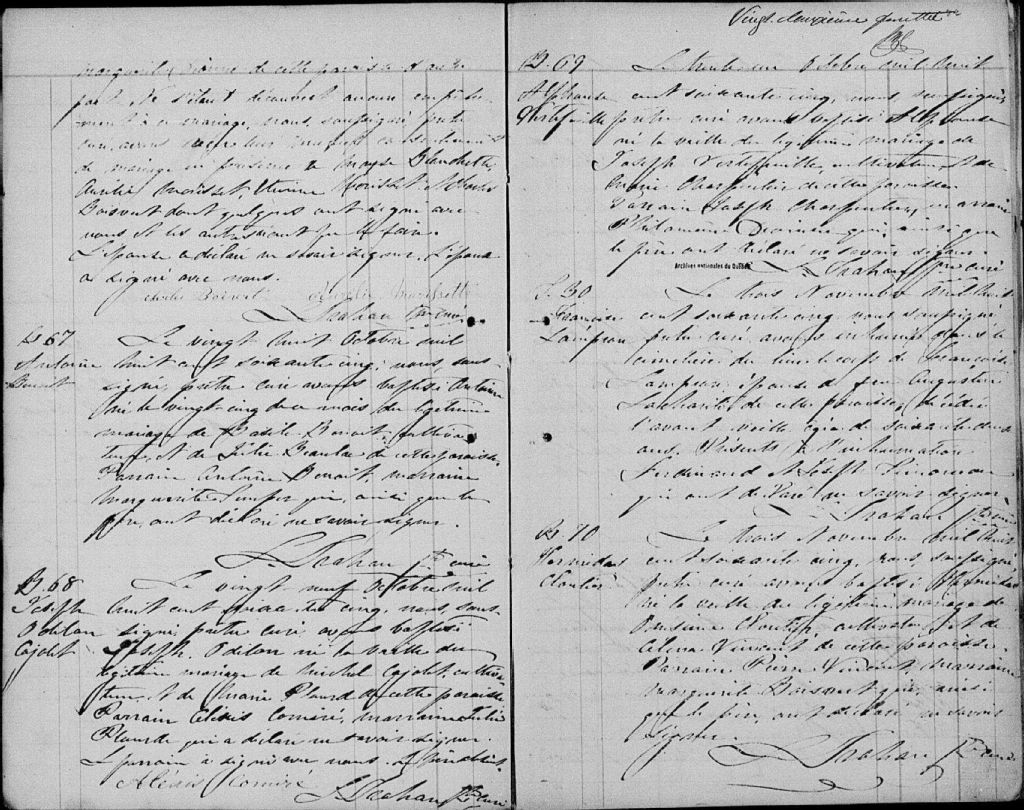 Marguerite de cette paroisse d'autre
part. Ne s'étant découvert aucun empêche-
ment à ce mariage, nous, soussigné prêtre
curé, avons reçu leur mutuel consentement
de mariage en présence de Moyse Blanchette,
Aurélie Morissette,
Boisvert dont quelques ont signé avec
nous et les autres
L'épouse a déclaré ne savoir signer. L'époux
a signé avec nous.
Boisvert
Trahan Ptre curé
B. 67
Antoine
Benoit
Le vingt huit Octobre mil
huit cent soixante cinq, nous, sous-
signé, prêtre curé avons baptisé Antoine
né le vingt-cinq de ce mois du légitime
mariage de Basile Benoit, cultiva-
teur, et de Julie Beaulac de cette paroisse.
Parrain Antoine Benoit, marraine
Marguerite qui, ainsi que le
père, ont déclaré ne savoir signer.
Trahan Ptre curé
B. 68
Joseph
Odilon
Cajolet
Le vingt neuf Octobre mil
huit cent soixante cinq, nous, sous-
signé, prêtre curé avons baptisé
Joseph Odilon né la veille du
légitime mariage de Michel Cajolet, cultiva-
teur, et de Marie Plourde de cette paroisse.
Parrain Alexis Comiré, marraine Julie
Plourde qui a déclaré ne savoir signer.
Le parrain a signé avec nous.
Alexis Comiré
Trahan Ptre curé
Vingt-deuxième feuillet
B. 69
Alphonse
Vertefeuille
Le trente un Octobre mil huit
cent soixante cinq, nous, soussigné,
prêtre curé avons baptisé Alphonse
né la veille du légitime mariage de
Joseph Vertefeuille, cultivateur, et de
Marie Charpentier de cette paroisse.
Parrain Joseph Charpentier, marraine
Philomène qui, ainsi que
le père ont déclaré ne savoir signer.
Archives nationales du Québec
Trahan Ptre curé
S. 30
Françoise
Lampron
Le trois Novembre mil huit
cent soixante cinq nous soussigné
prêtre curé, avons inhumé dans le
cimetière du lieu le corps de Françoise
Lampron, épouse de feu Augustin
de cette paroisse, décédée
l'avant veille âgée de soixante deux
ans. Présents à l'inhumation
Ferdinand et Joseph
qui ont déclaré ne savoir signer.
Trahan Ptre curé
B. 70
Hormidas
Cloutier
Le trois Novembre mil huit
cent soixante cinq, nous, soussigné,
prêtre curé avons baptisé Hormidas
né la veille du légitime mariage de
Onésime Cloutier, cultivateur, et de
Vincent de cette paroisse.
Parrain Pierre Vincent, marraine
Marguerite Boisvert qui, ainsi
que le père, ont déclaré ne savoir
signer.
Trahan Ptre curé